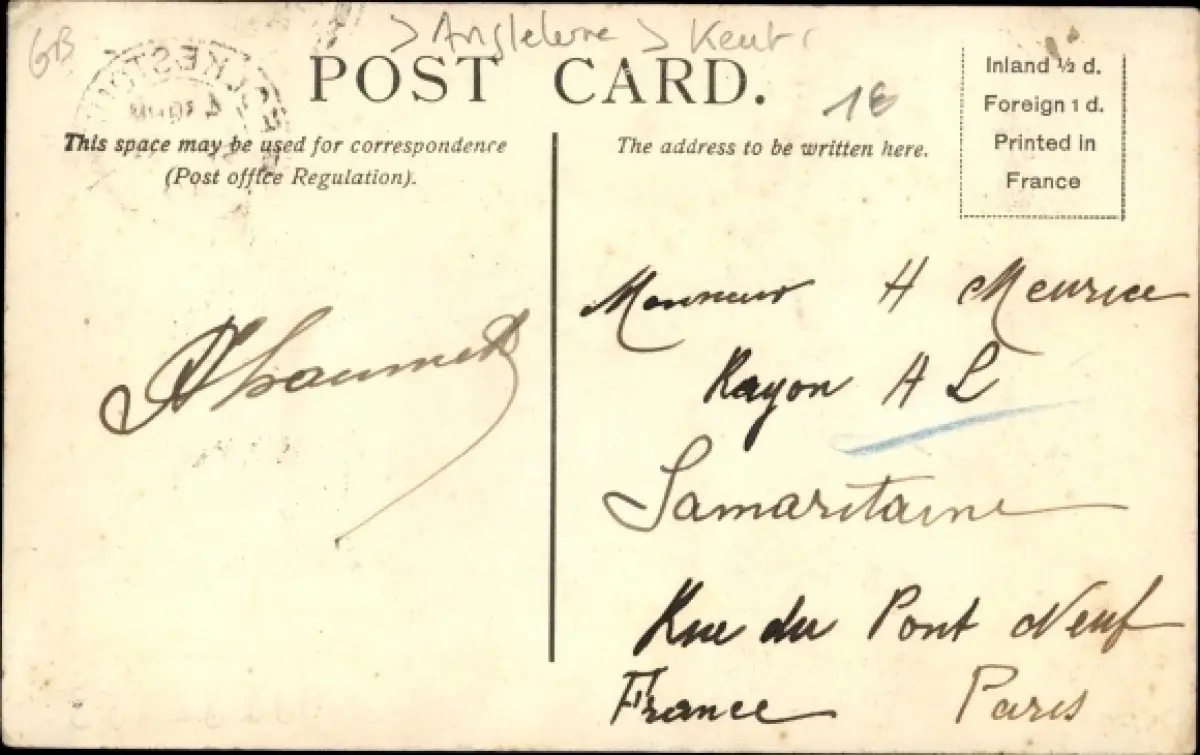 GB
> Angleterre > Kent
POST CARD.
18
Inland ½ d.
Foreign 1 d.
Printed in
France
This space may be used for correspondence
(Post office Regulation).
The address to be written here.
Monsieur H Meurice
Rayon A L
Samaritaine
Rue du Pont Neuf
France Paris